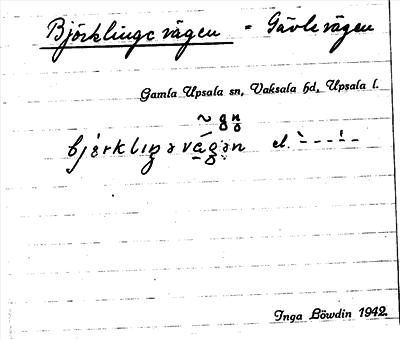 Björklingevägen = Gävlevägen
Gamla Upsala sn, Vaksala hd, Upsala l.
~ gn̥
bjö̀rklıŋəvá̱gən el. `---'--
Inga Löwdin 1942.